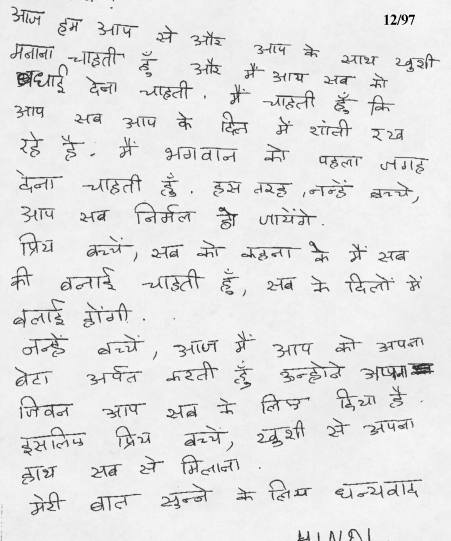 12/97
आज हम आप से और आप के साथ खुशी
मनाना चाहती हूँ और मैं आप सब को
बधाई देना चाहती. मैं चाहती हूँ कि
आप सब आप के दिल में शांती रख
रहे है. मैं भगवान को पहला जगह
देना चाहती हूँ. इस तरह, नन्हें बच्चे,
आप सब निर्मल हो जायेंगे.
प्रिय बच्चें, सब को कहना के मैं सब
की बनाई चाहती हूँ, सब के दिलों में
बलाई होंगी.
नन्हें बच्चें, आज मैं आप को अपना
बेटा अर्पत करती हूँ उन्होंने अपना
जिवन आप सब के लिए दिया है.
इसलिए प्रिय बच्चें, खुशी से अपना
हाथ सब से मिलाना.
मेरी बात सुन्ने के लिय धन्यवाद
HINDI